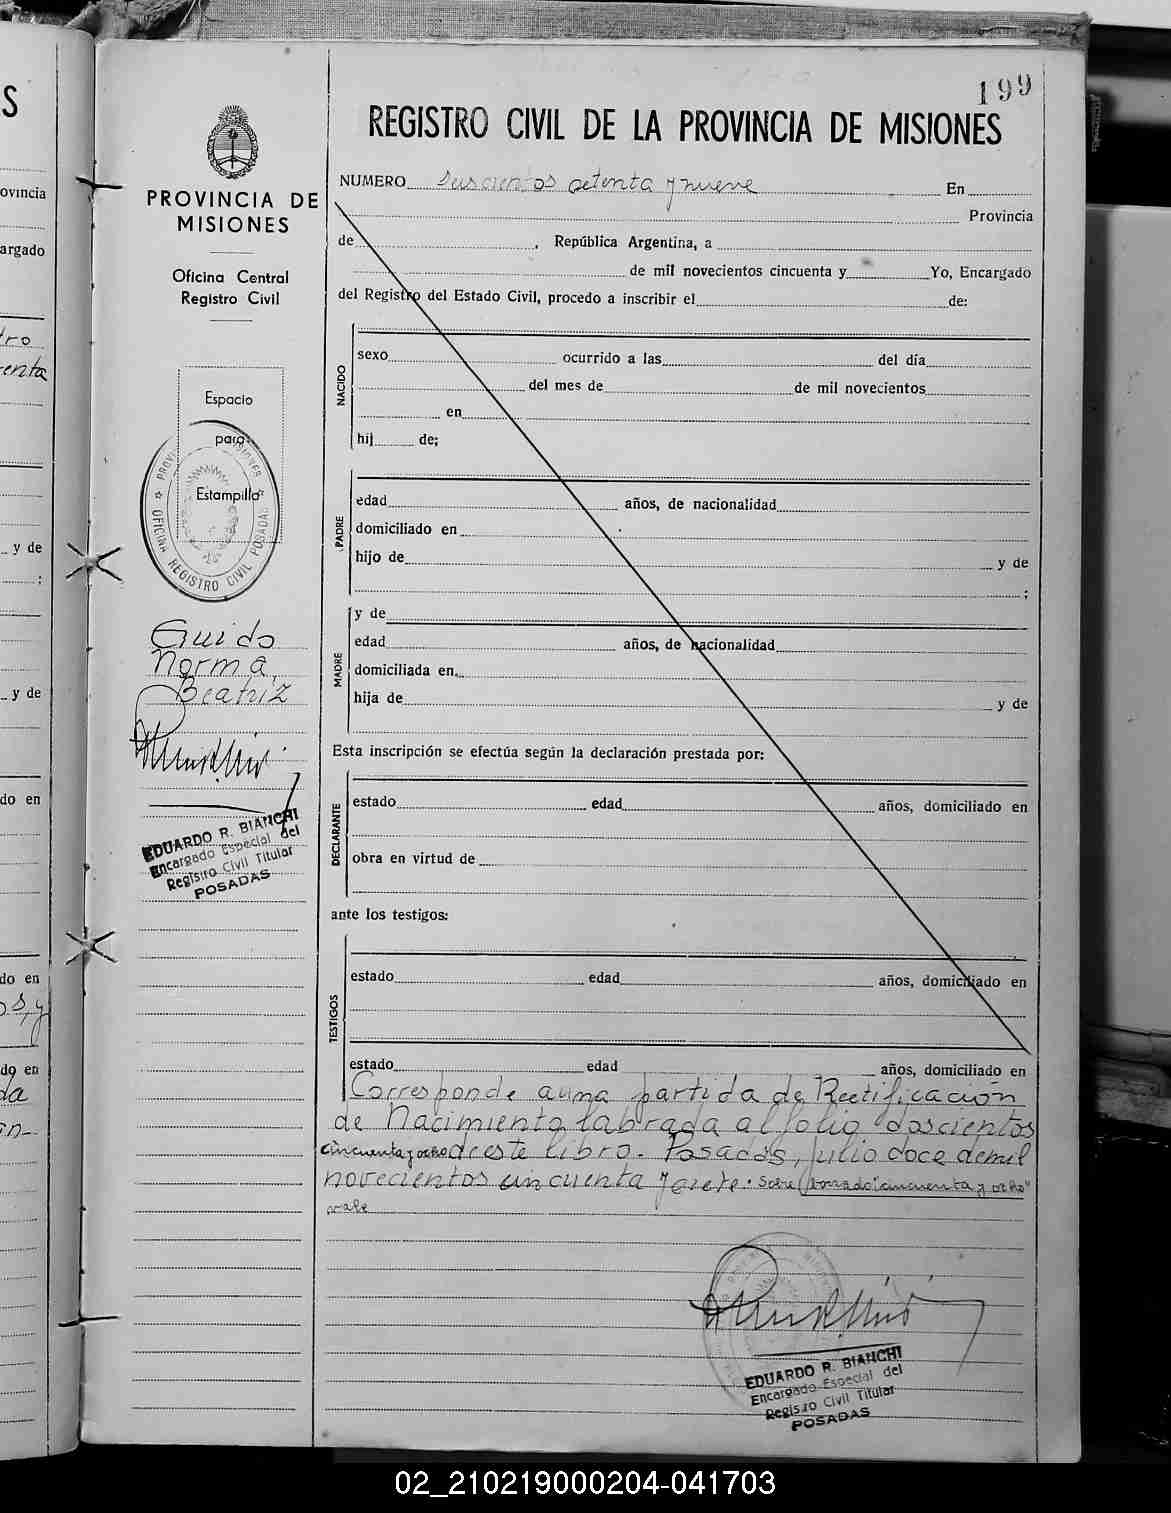 199
REGISTRO CIVIL DE LA PROVINCIA DE MISIONES
PROVINCIA DE
MISIONES
Oficina Central
Registro Civil
Espacio
para
Estampilla
OFICINA REGISTRO CIVIL POSADAS
Guido
Norma
Beatriz
EDUARDO R. BIANCHI
Encargado Especial del
Registro Civil Titular
POSADAS
NUMERO setenta y nueve En
Provincia
de , República Argentina, a
de mil novecientos cincuenta y Yo, Encargado
del Registro del Estado Civil, procedo a inscribir el de:
NACIDO
sexo ocurrido a las del día
del mes de de mil novecientos
en
hij de;
PADRE
edad años, de nacionalidad
domiciliado en
hijo de y de
;
MADRE
y de
edad años, de nacionalidad
domiciliada en
hija de y de
Esta inscripción se efectúa según la declaración prestada por:
DECLARANTE
estado edad años, domiciliado en
obra en virtud de
ante los testigos:
TESTIGOS
estado edad años, domiciliado en
estado edad años, domiciliado en
Corresponde a una partida de Rectificación
de Nacimiento labrada al folio doscientos
cincuenta y ocho de este libro. Posadas, julio doce de mil
novecientos cincuenta y siete. Sobre borrado "cincuenta y ocho"
vale
EDUARDO R. BIANCHI
Encargado Especial del
Registro Civil Titular
POSADAS
S
ovincia
argado
tro
enta
y de
;
y de
do en
do en
s, y
do en
da
en-
02_210219000204-041703